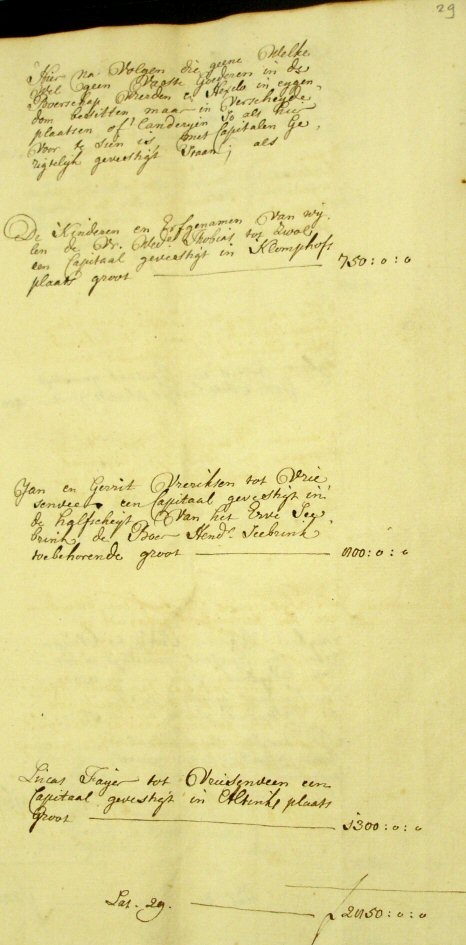 29
Hier na Volgen die geene Welke
Wel geen Vaste Goederen in de
Boerschap Vrerden in eygen-
dom besitten maar in Verscheyde
plaatsen of Landeryen so als hier
Voor te sien is, met Capitalen Ge-
rigtelyk gevestigt staan, als
De Kinderen en Erfgenamen Van wy-
len de Vr. Wede Thobias tot Zwol
een Capitaal gevestigt in Klomphofs
plaats groot 750:0:0
Jan en Gerrit Vreriksen tot Vrie
senveen een Capitaal gevestigt in
de halfscheyt Van het Erve See-
brink de Boer Hendr. Seebrink
toebehorende groot 400:0:0
Lucas Fayer tot Vriesenveen een
Capitaal gevestigt in Altinks plaats
groot 1300:0:0
Lat. 29. ƒ 2450:0:0